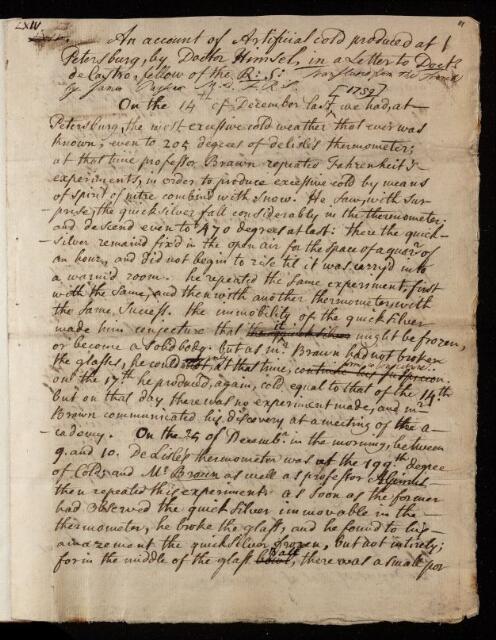 LXIV
An account of Artificial cold produced at
Petersburg, by Doctor Himsel, in a Letter to Doctr
de Castro, fellow of the R: S: Translated from the French
by James Parsons M.D. F.R.S.
[1759]
On the 14th of December last, we had, at
Petersburg, the most excessive cold weather that ever was
known, even to 205 degrees of delisle's thermometer;
at that time professor Brawn repeated Fahrenheit's
experiments, in order to produce excessive cold by means
of spirit of nitre combin'd with snow. He saw, with Sur-
prise, the quicksilver fall considerably in the thermometer;
and descend even to 470 degrees at last: there the quick-
silver remained fix'd in the open air for the space of a quar.r of
an hour, and did not begin to rise til it was carry'd into
a warm'd room. he repeated the same experiment, first
with the same, and then with another thermometer, with
the same Success. the immobility of the quicksilver
made him conjecture that it might be frozen,
or become a solid body. but as mr. Brawn had not broken
the glasses, he could at that time,
on the 17th he produced, again, cold equal to that of the 14th
but on that day there was no experiment made, and mr
Brawn communicated his discovery at a meeting of the a-
cademy. On the 25 of Decembr. in the morning, between
9. and 10. De Lisle's thermometer was at the 199th degree
of Cold; and Mr. Brawn as well as professor
then repeated this experiment: as soon as the former
had observed the quicksilver immovable in the
thermometer, he broke the glass, and he found to his
amazement the quicksilver frozen, but not intirely;
for in the middle of the glass Ball, there was a small por